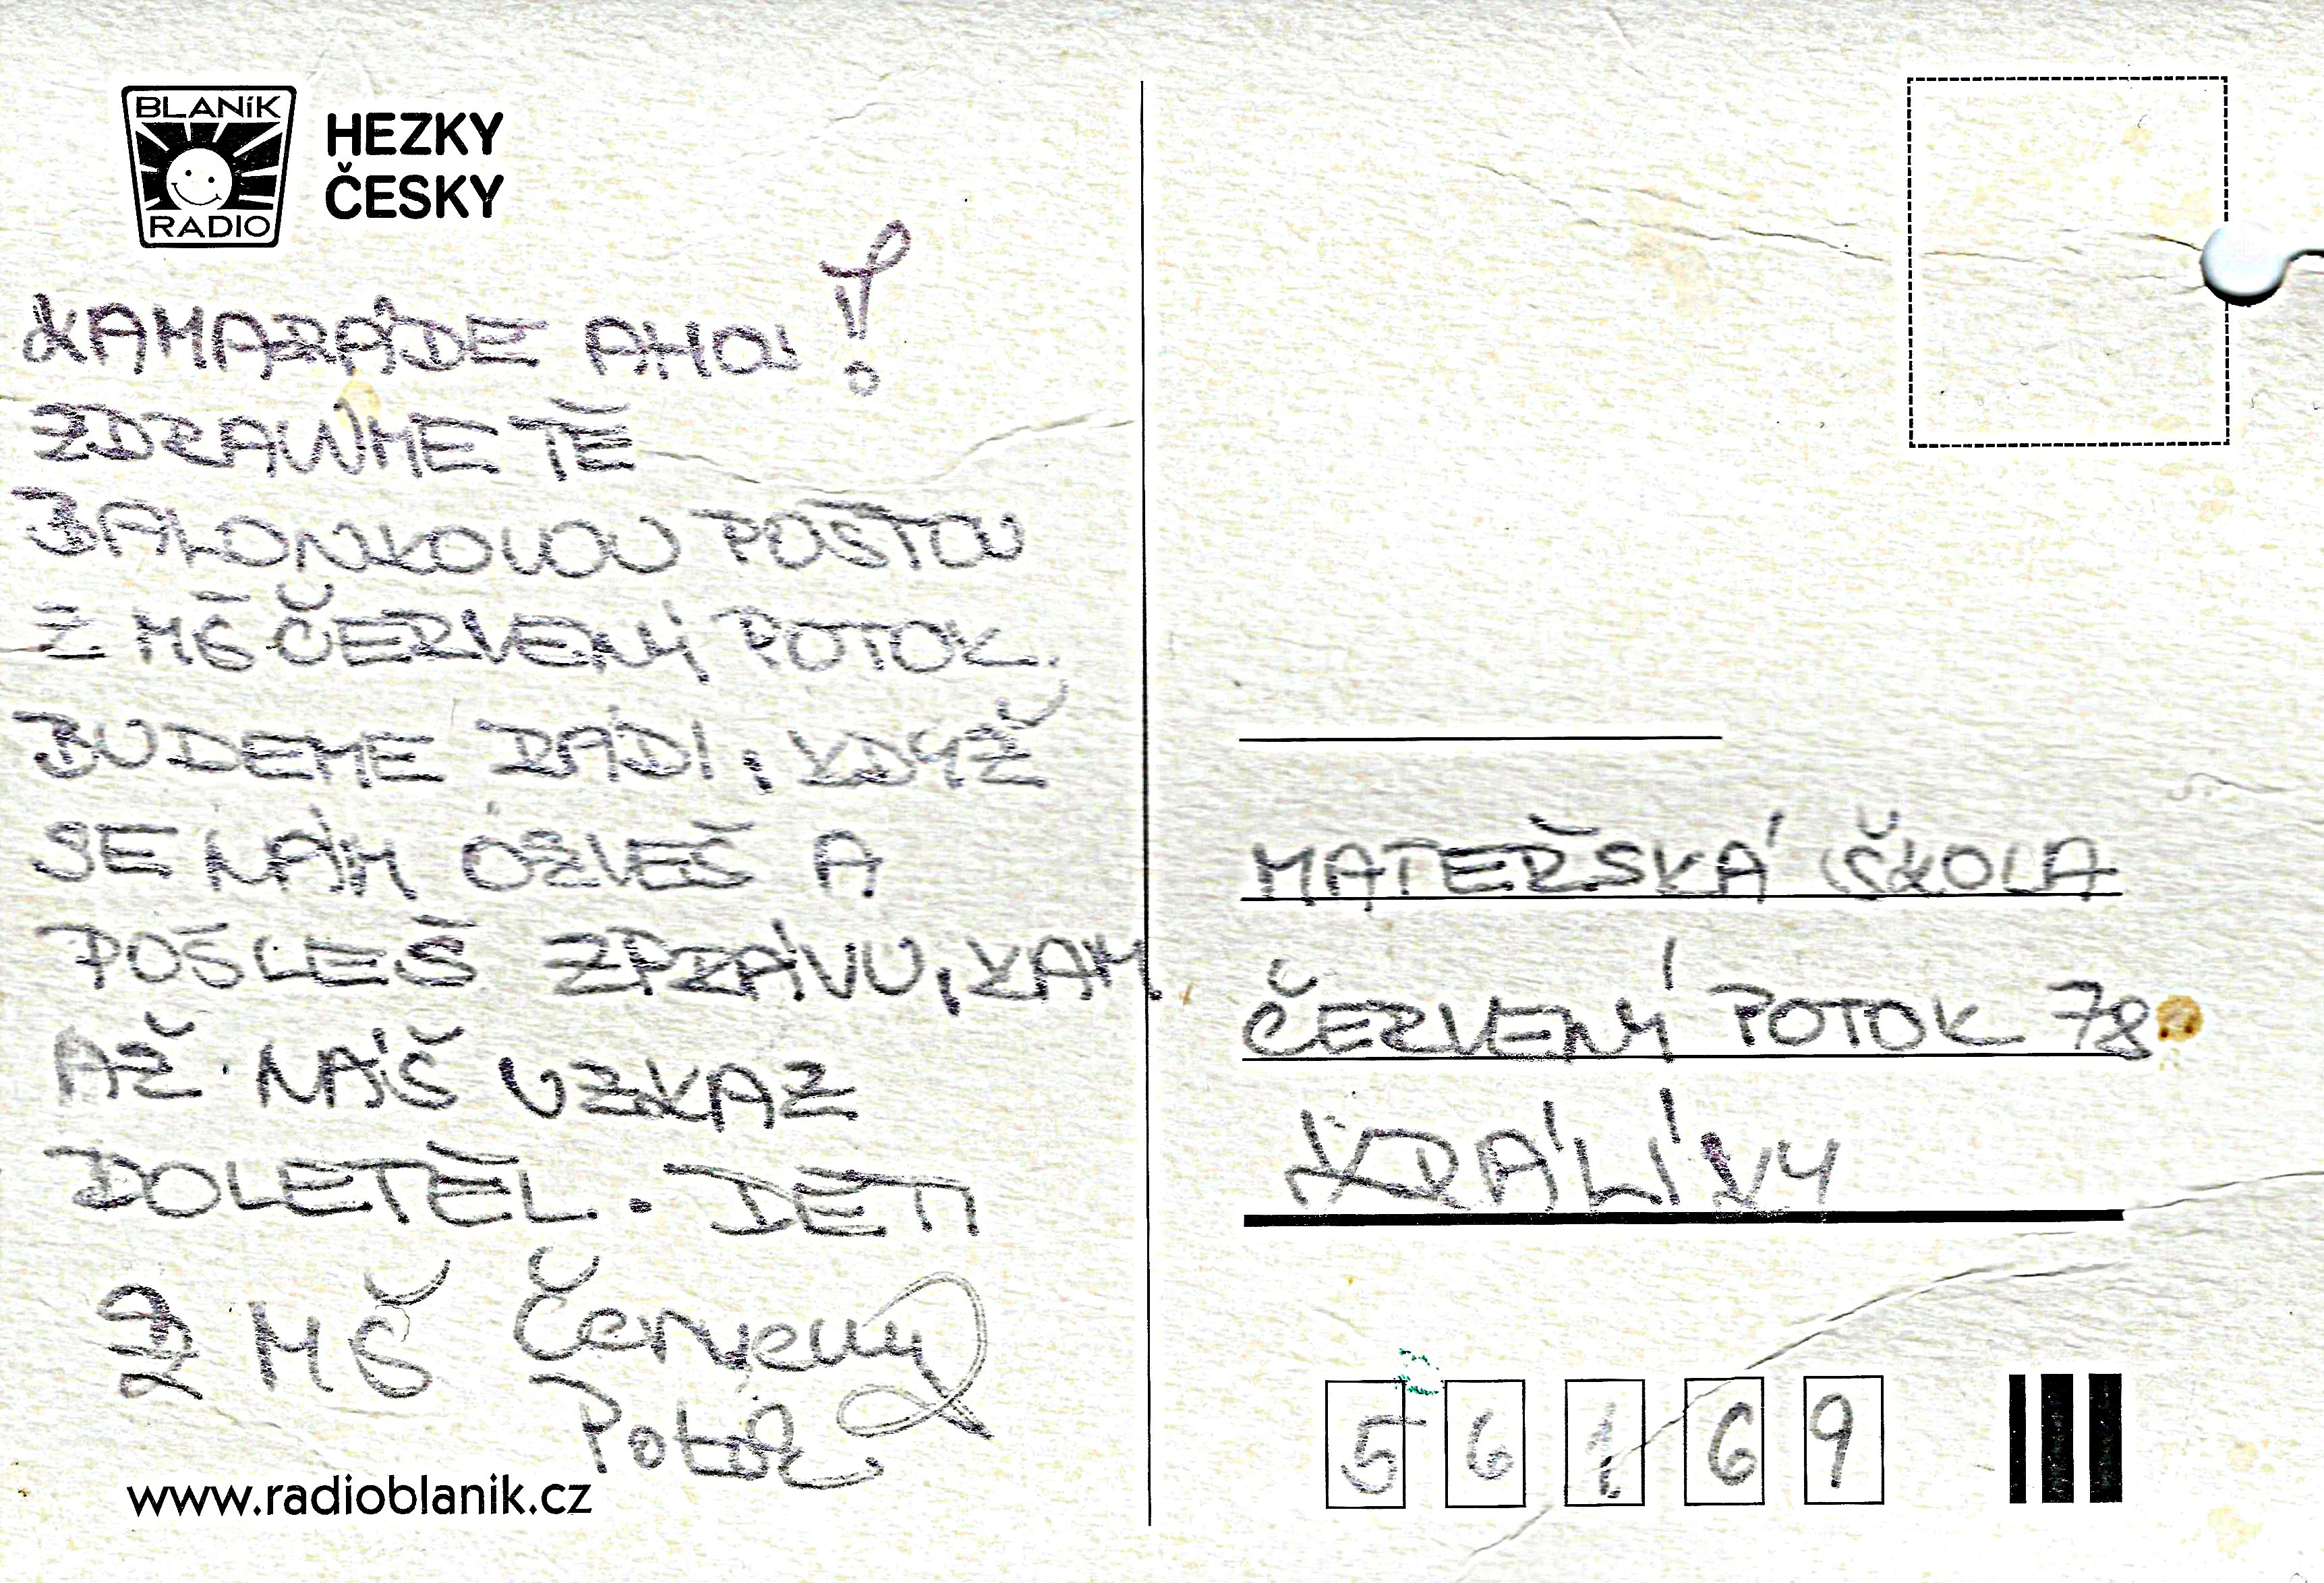 BLANíK
RADIO
HEZKY
ČESKY
KAMARÁDE AHOJ!
ZDRAVÍME TĚ
BALONKOVOU POŠTOU
Z MŠ ČERVENÝ POTOK.
BUDEME RÁDI, KDYŽ
SE NÁM OZVEŠ A
POŠLEŠ ZPRÁVU, KAM
AŽ NÁŠ VZKAZ
DOLETĚL. DĚTI
Z MŠ Červený
Potok
www.radioblanik.cz
MATEŘSKÁ ŠKOLA
ČERVENÝ POTOK 78
KRÁLÍKY
5 6 1 6 9